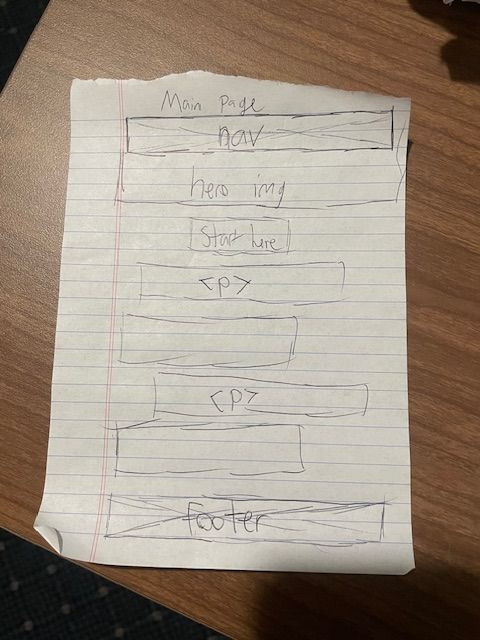 Main page
nav
hero img
Start here
<p>
<p>
Footer